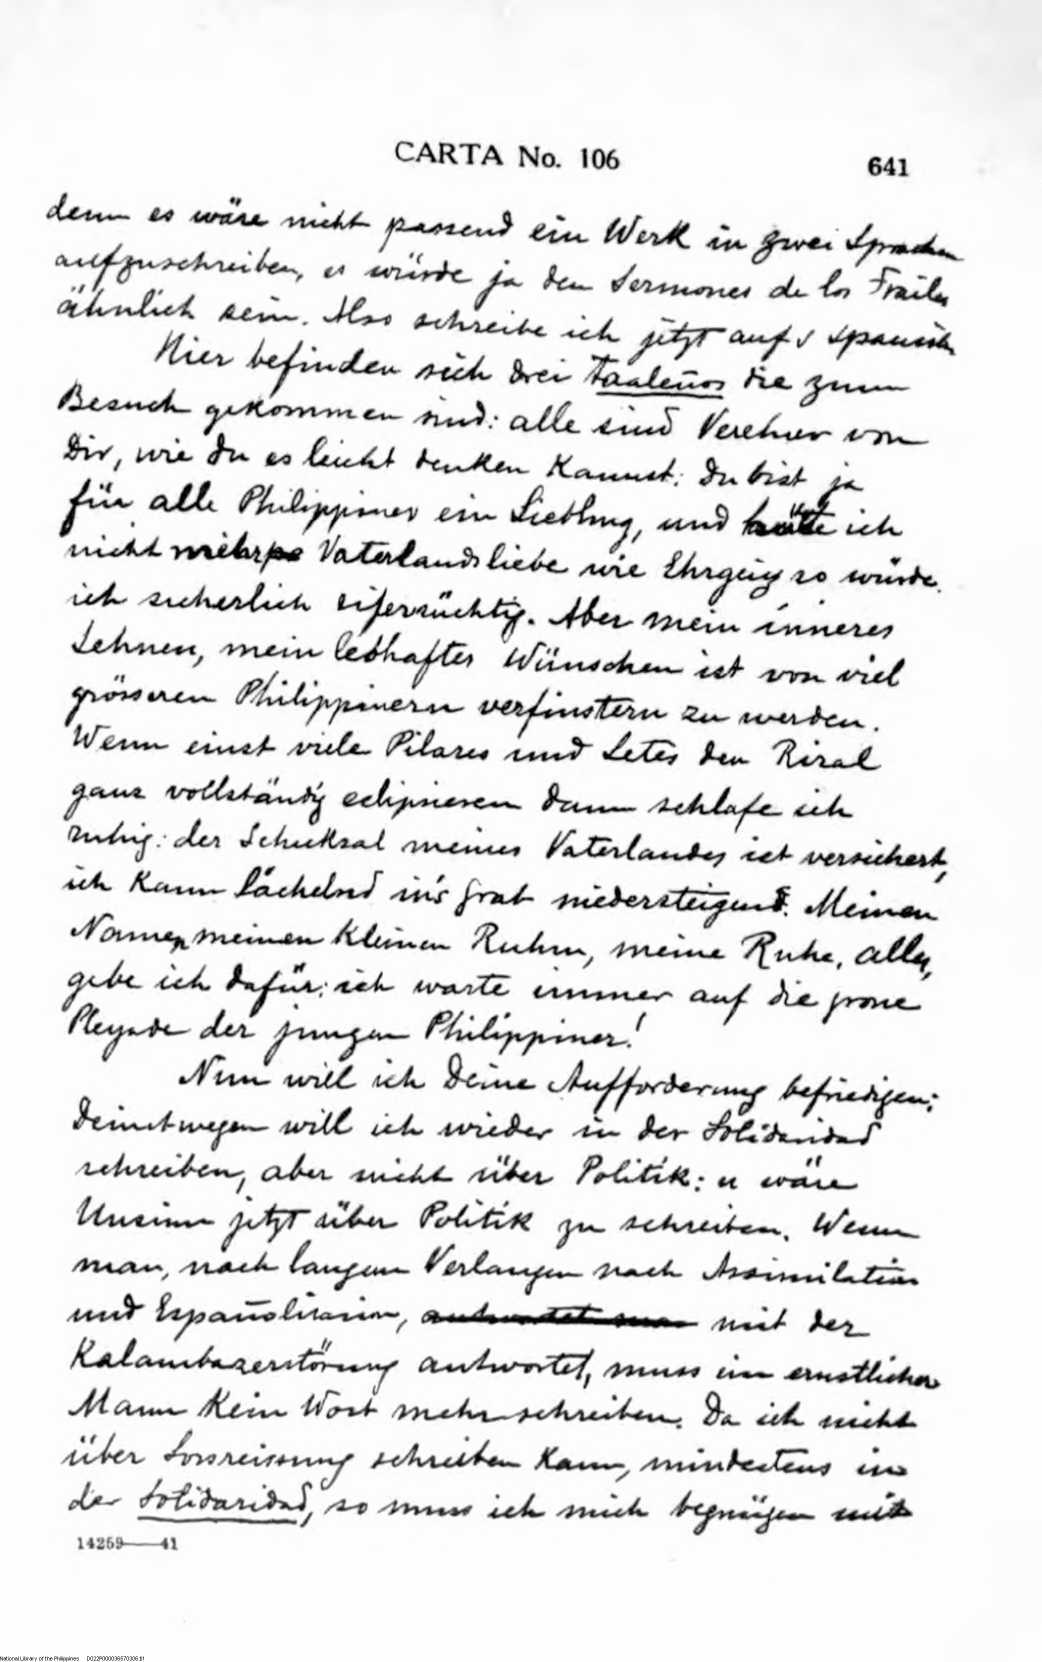 CARTA No. 106
641
denn es wäre nicht passend ein Werk in zwei Sprachen
aufzuschreiben, es würde ja den Sermones de los Frailes
ähnlich sein. Also schreibe ich jetzt auf Spanisch
Hier befinden sich drei Taaleños die zum
Besuch gekommen sind: alle sind Verehrer von
Dir, wie du es leicht denken kannst: du bist ja
für alle Philippiner ein Liebling, und hätte ich
nicht mehr Vaterlandsliebe wie Ehrgeiz so würde
ich sicherlich eifersüchtig. Aber mein inneres
Sehnen, mein lebhaftes Wünschen ist von viel
grösseren Philippinern verfinstern zu werden.
Wenn einst viele Pilares und Letes den Rizal
ganz vollständig eclipsieren dann schlafe ich
ruhig: der Schicksal meines Vaterlandes ist versichert,
ich kann lächelnd in's Grab niedersteigend. Meinen
Namen, meinen kleinen Ruhm, meine Ruhe, alles,
gebe ich dafür: ich warte immer auf die grosse
Pleyade der jungen Philippiner!
Nun will ich Deine Aufforderung befriedigen:
Deinetwegen will ich wieder in der Solidaridad
schreiben, aber nicht über Politik: es wäre
Unsinn jetzt über Politik zu schreiben. Wenn
man, nach langem Verlangen nach Assimilation
und Españolizacion, antwortet man mit der
Kalambazerstörung antwortet, muss ein ernstlicher
Mann kein Wort mehr schreiben. Da ich nicht
über Losreissung schreiben kann, mindestens in
der Solidaridad, so muss ich mich begnügen mit
14259——41
National Library of the Philippines